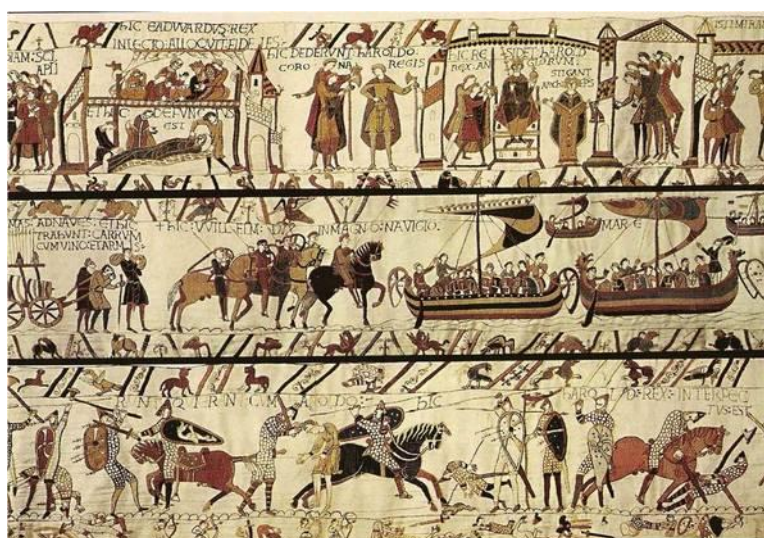 HIC EADWARDVS: REX
IN LECTO: ALLOQVIT: FIDELES:
ET HIC: DEFVNCTVS
EST
HIC DEDERVNT: HAROLDO:
CORONA REGIS
HIC RESIDET: HAROLD
REX: ANGLORVM:
STIGANT
ARCHIEPS
ISTI MIRANT
AD NAVES: ET HIC
TRAHVNT: CARRVM
CVM VINO: ET ARMIS:
+ HIC: VVILLELM: DVX
IN MAGNO: NAVIGIO:
MARE
HAROLDO:
HIC
HAROLD: REX: INTERFEC
TVS: EST